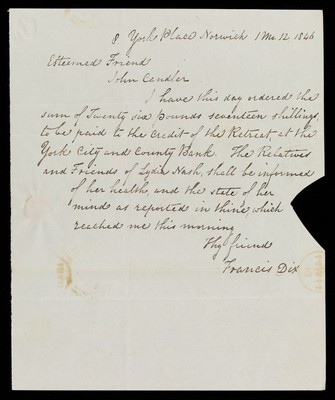 8. York Place Norwich 1 Mo. 12. 1846
Esteemed Friend
John Candler
I have this day ordered the
sum of Twenty six pounds seventeen shillings,
to be paid to the credit of the Retreat at the
York City and County Bank. The Relatives
and Friends of Lydia Nash, shall be informed
of her health, and the state of her
mind as reported in thine, which
reached me this morning
Thy friend
Francis Dix